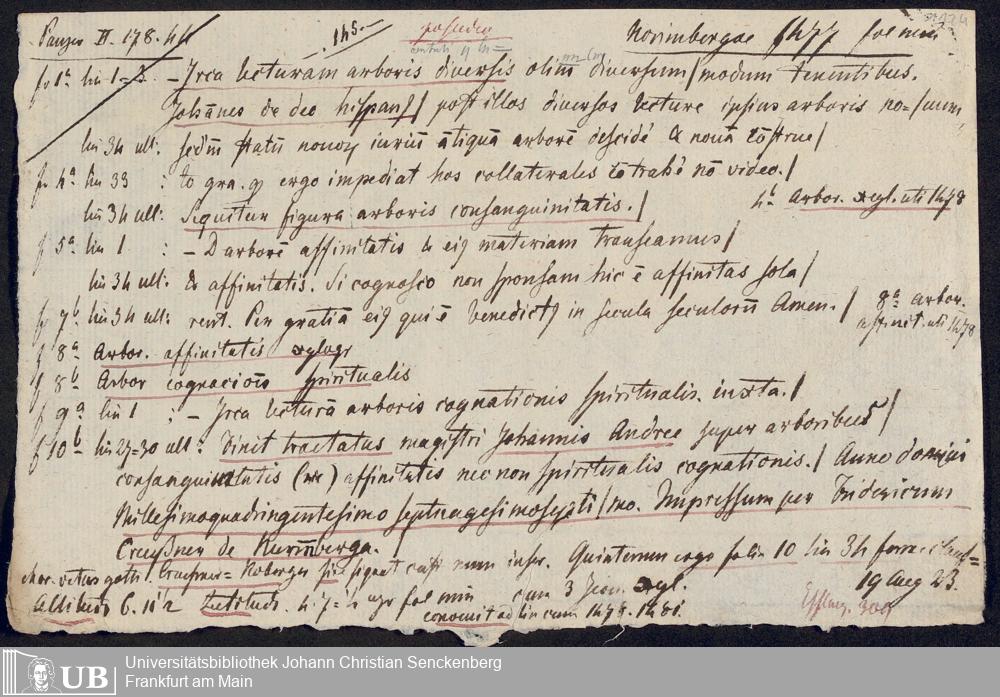 Panzer II. 178. 44 . 145.- possedeo Norimbergae 1477 fol min
f 1a lin 1-3 - Irca lecturam arboris diversis olim diversum/modum tenentibus.
Johānes de deo hispanꝰ/ post illos diversos lecture ipsius arboris no=/
lin 34 ult: sedm statū nouoꝝ iuriū ātiquā arborē descidē & nouā cōstrue/
f 4a lin 33 : to gra. ꝙ ergo impediat hos collaterales cōtrahē nō video./
lin 34 ult: Sequitur figura arboris consanguinitatis./ 4b Arbor. xyl. uti 1478
f 5a lin 1 : - D arborē affinitatis & eiꝰ materiam transeamus/
lin 34 ult: & affinitatis. Si cognosco non sponsam hic ē affinitas sola/
f 7b lin 34 ult: rent. Per gratiā eiꝰ qui ē benedictꝰ in secula seculorū Amen./ 8a arbor.
affinit. uti 1478
f 8a Arbor. affinitatis xylogr
f 8b Arbor cognaciois spiritualis
f 9a lin 1 : - Irca lecturā arboris cognationis spiritualis. iuxta./
f 10b lin 27=30 ult: Finit tractatus magistri Johannis Andree super arboribus/
consanguinitatis affinitatis nec non spiritualis cognationis./ Anno domini
Millesimoquadringentesimo septuagesimosepti/mo. Impressum per Fridericum
Creußner de Nurmberga.
char. vetus goth. Creusner= Koberger sine signat custod num inser. Quinternum ergo folia 10 lin 34
Altitudo 6. 11 1/2 Latitud. 4. 7 1/2 fol min cum 3 xyl. 19 Aug 23
convenit ad lin cum 1478. 1481. 309
Universitätsbibliothek Johann Christian Senckenberg
Frankfurt am Main
UB